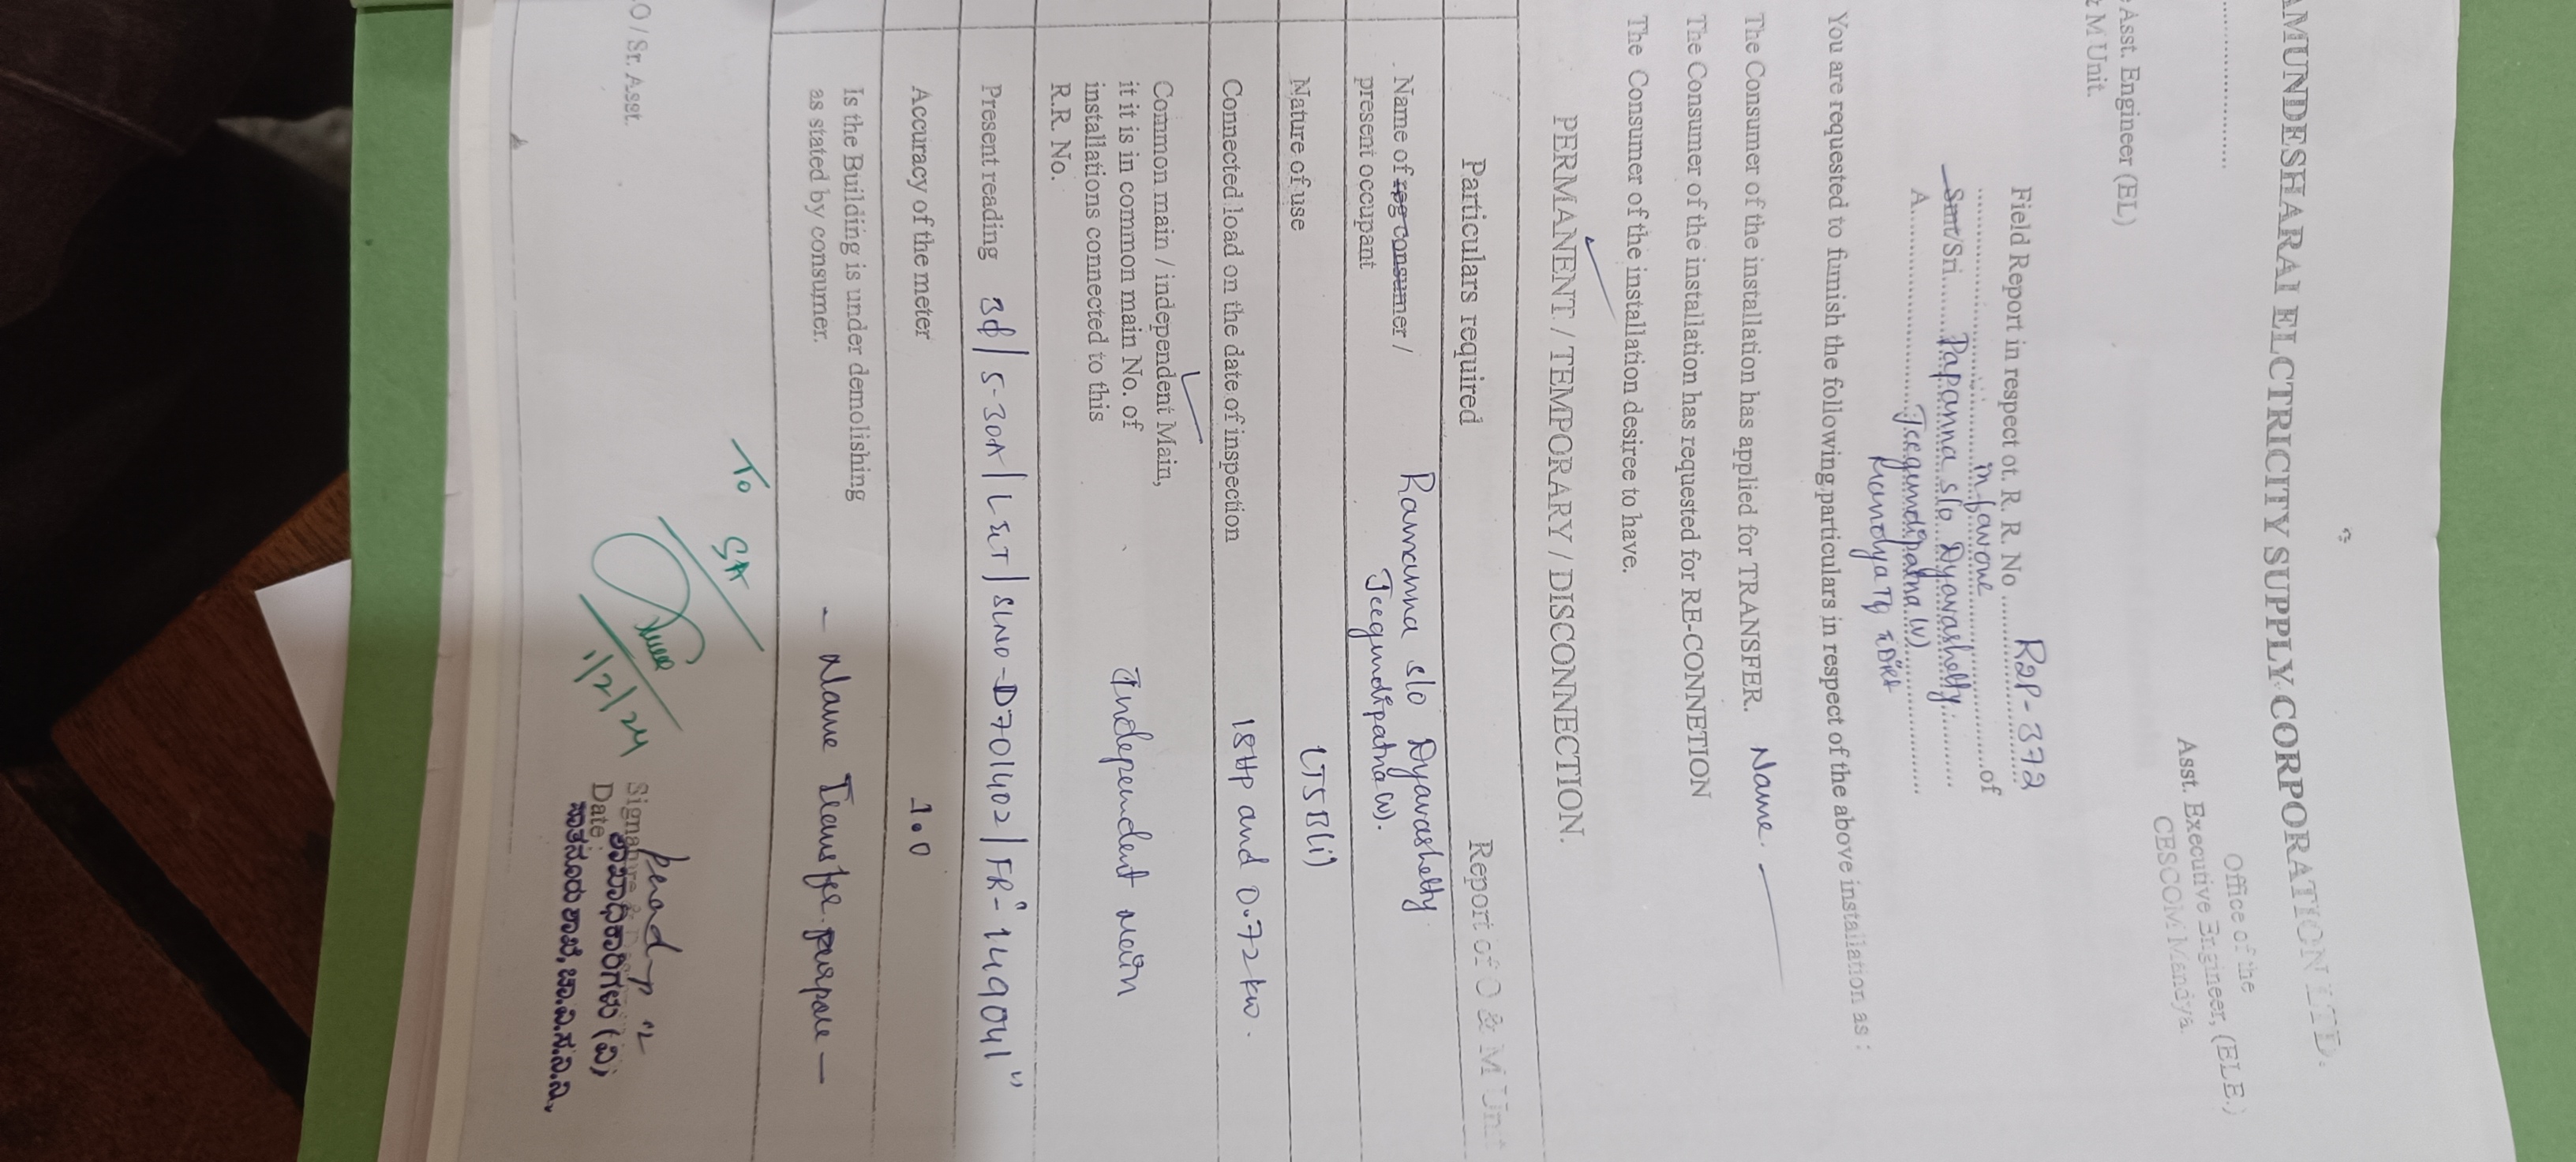 AMUNDESHARAI ELCTRICITY SUPPLY CORPORATION LTD.
Office of the
Asst. Executive Engineer, (ELE.)
CESCOM Mandya.
Asst. Engineer (EL)
M Unit.
Field Report in respect ot. R. R. No R2P-372
in favour of
Smt/Sri Papanna s/o Dyavashetty
A
Mandya Tq
You are requested to furnish the following particulars in respect of the above installation as :
The Consumer of the installation has applied for TRANSFER. Name.
The Consumer of the installation has requested for RE-CONNETION
The Consumer of the installation desiree to have.
PERMANENT / TEMPORARY / DISCONNECTION.
Particulars required Report of O & M Unit
Name of reg consumer / Ramanna s/o Dyavashetty
present occupant
Nature of use LT5B(i)
Connected load on the date of inspection 18HP and 0.72kw.
Common main / independent Main,
it it is in common main No. of Independent main
installations connected to this
R.R. No.
Present reading 3ϕ/5-30A/L&T/SLNO-D701402/FR-149041
Accuracy of the meter 1.0
Is the Building is under demolishing
as stated by consumer. - Name Transfer purpose -
To
SA
O / Sr. Asst.
1/2/24
Signature &
Date:
ಶಾಖಾಧಿಕಾರಿಗಳು (ವಿ)